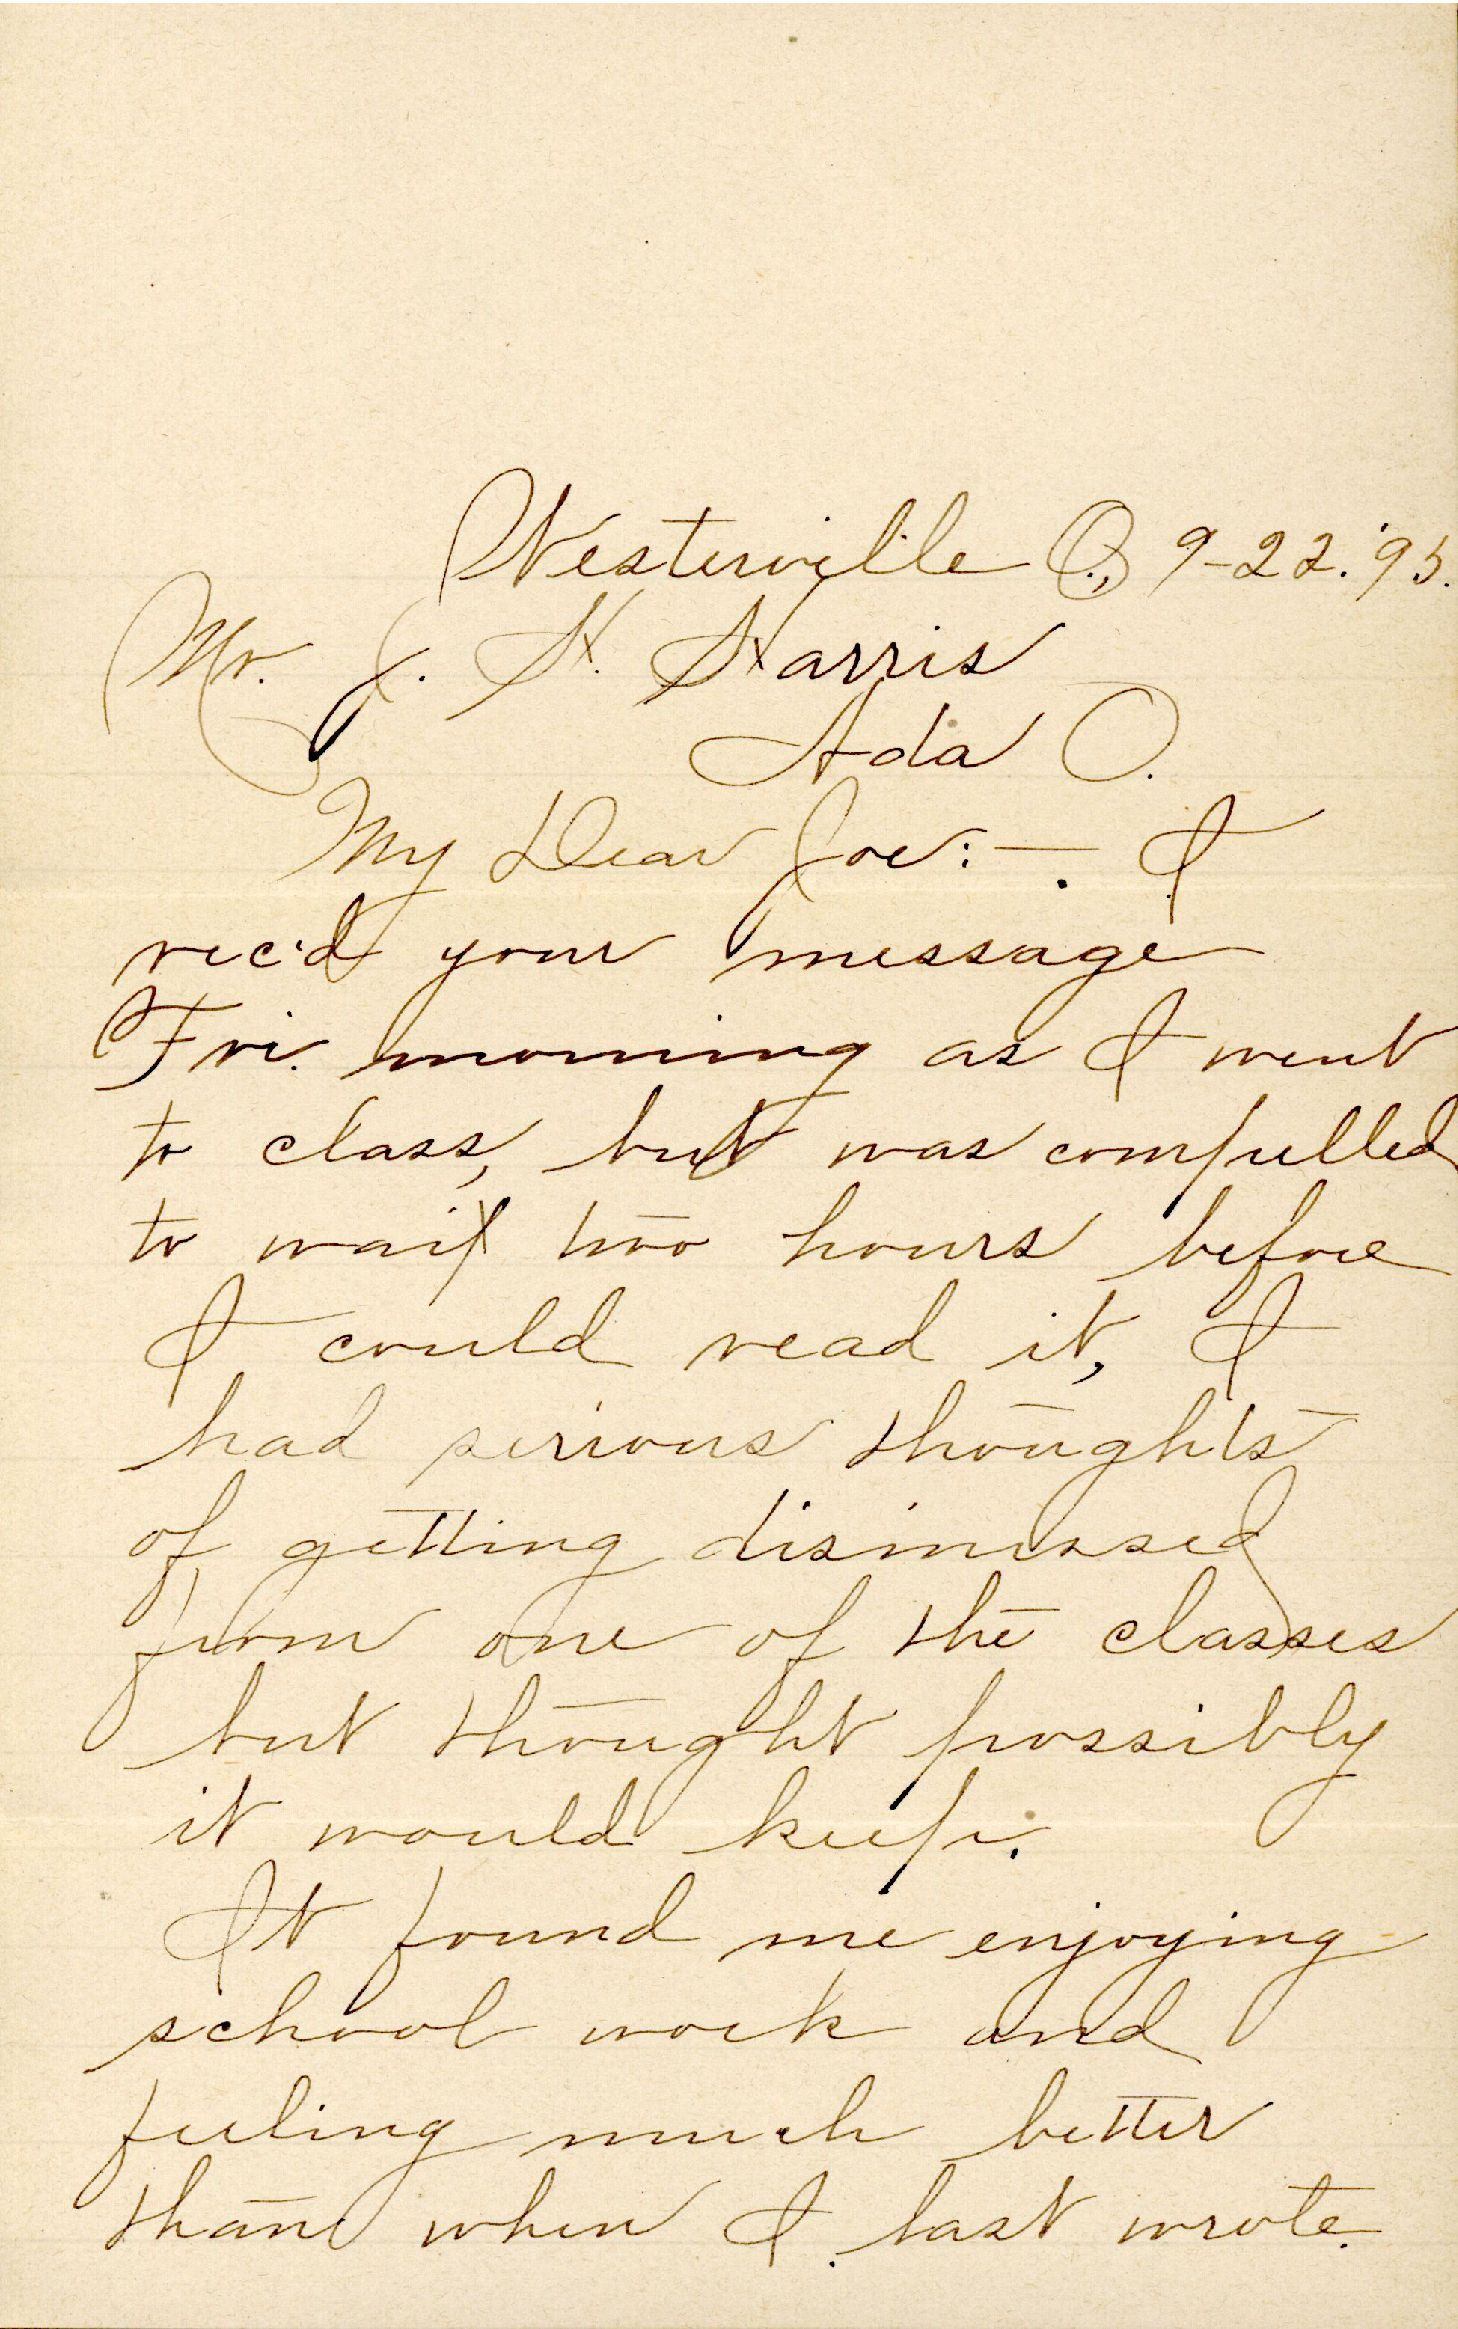 Westerville O., 9-22.'95.
Mr. J. H. Harris
Ada O.
My Dear Joe:—. I
rec'd your message
Fri. morning as I went
to class, but was compelled
to wait two hours before
I could read it, I
had serious thoughts
of getting dismissed
from one of the classes
but thought possibly
it would keep.
It found me enjoying
school work and
feeling much better
than when I last wrote.